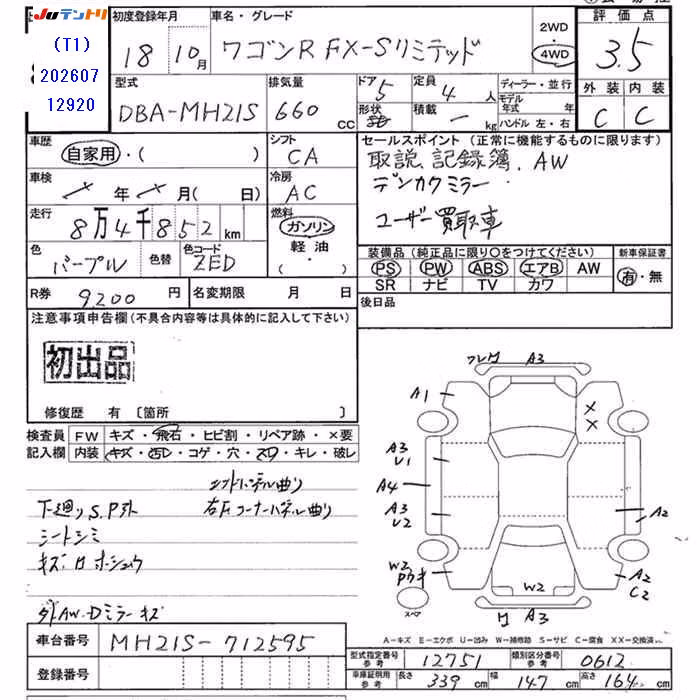 JUテントリ
(T1)
202607
12920
初度登録年月
18 10月
車名・グレード
ワゴンR FX-Sリミテッド
2WD
4WD
評価点
3.5
外装 内装
C C
型式
DBA-MH21S
排気量
660 cc
ドア
5
形状
定員
4 人
積載
kg
ディーラー・並行
モデル年式 年
ハンドル 左・右
車歴
自家用・( )
シフト
CA
車検
年 月( 日)
冷房
AC
走行
8万4千852 km
燃料
ガソリン
軽油
・( )
色
パープル
色替
色コード
ZED
R券
9200 円
名変期限 月 日
セールスポイント (正常に機能するものに限ります)
取説、記録簿、AW
デンカクミラー
ユーザー買取車
装備品 (純正品に限り〇をつけてください)
PS PW ABS エアB AW
SR ナビ TV カワ
新車保証書
有・無
後日品
注意事項申告欄(不具合内容等は具体的に記入して下さい)
初出品
修復歴 有 〔箇所 〕
検査員
記入欄
FW キズ・飛石・ヒビ割・リペア跡・×要
内装 キズ・汚レ・コゲ・穴・スレ・キレ・破レ
下廻りS.P外
右Fコーナーパネル曲り
シートシミ
キズ
AW・Dミラーキズ
車台番号
MH21S-712595
登録番号
A3
A1
A3
U1
A4
A3
U2
W2
W2
A3
A2
A2
C2
スペア
A-キズ E-エクボ U-凹み W-補修跡 S-サビ C-腐食 XX-交換済
型式指定番号
参考
12751
類別区分番号
参考
0612
車庫証明用
参考
長さ 339 cm
幅 147 cm
高さ 164 cm